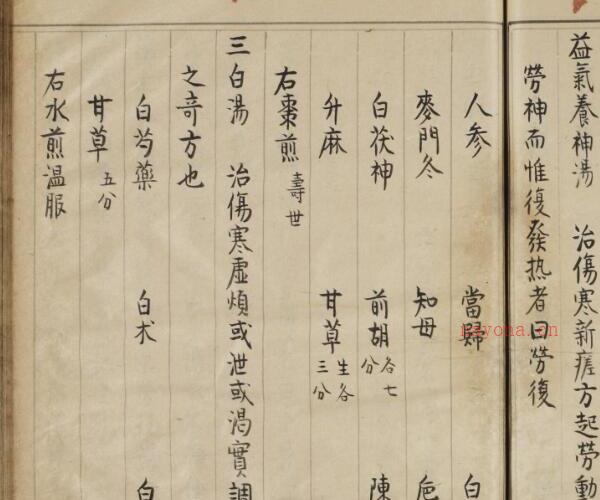 益氣養神湯 治傷寒新瘥方起勞動
勞神而惟復發热者曰勞復
人参 當歸 白
麥門冬 知母
白茯神 前胡各七分 陳
升麻 甘草生各三分
右棗煎壽世
三白湯 治傷寒虛煩或泄或渴實調
之奇方也
白芍藥 白术 白
甘草五分
右水煎温服
nayona.cn